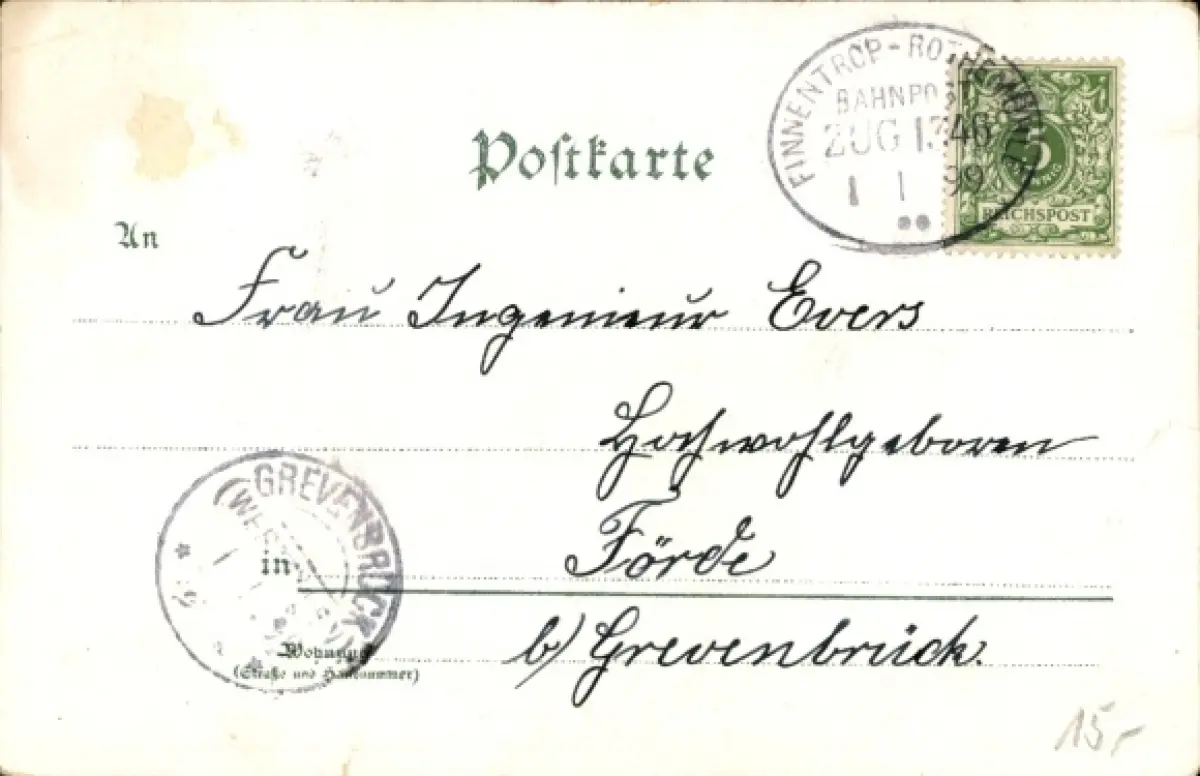 FINNENTROP - ROTHEMÜHLE
BAHNPOST
ZUG 1346
1 1 99
5
PFENNIG
REICHSPOST
Postkarte
An
Frau Ingenieur Evers
Hochwohlgeboren
GREVENBRÜCK
in
Förde
b/ Grevenbrück.
Wohnung
(Straße und Hausnummer)
15,-